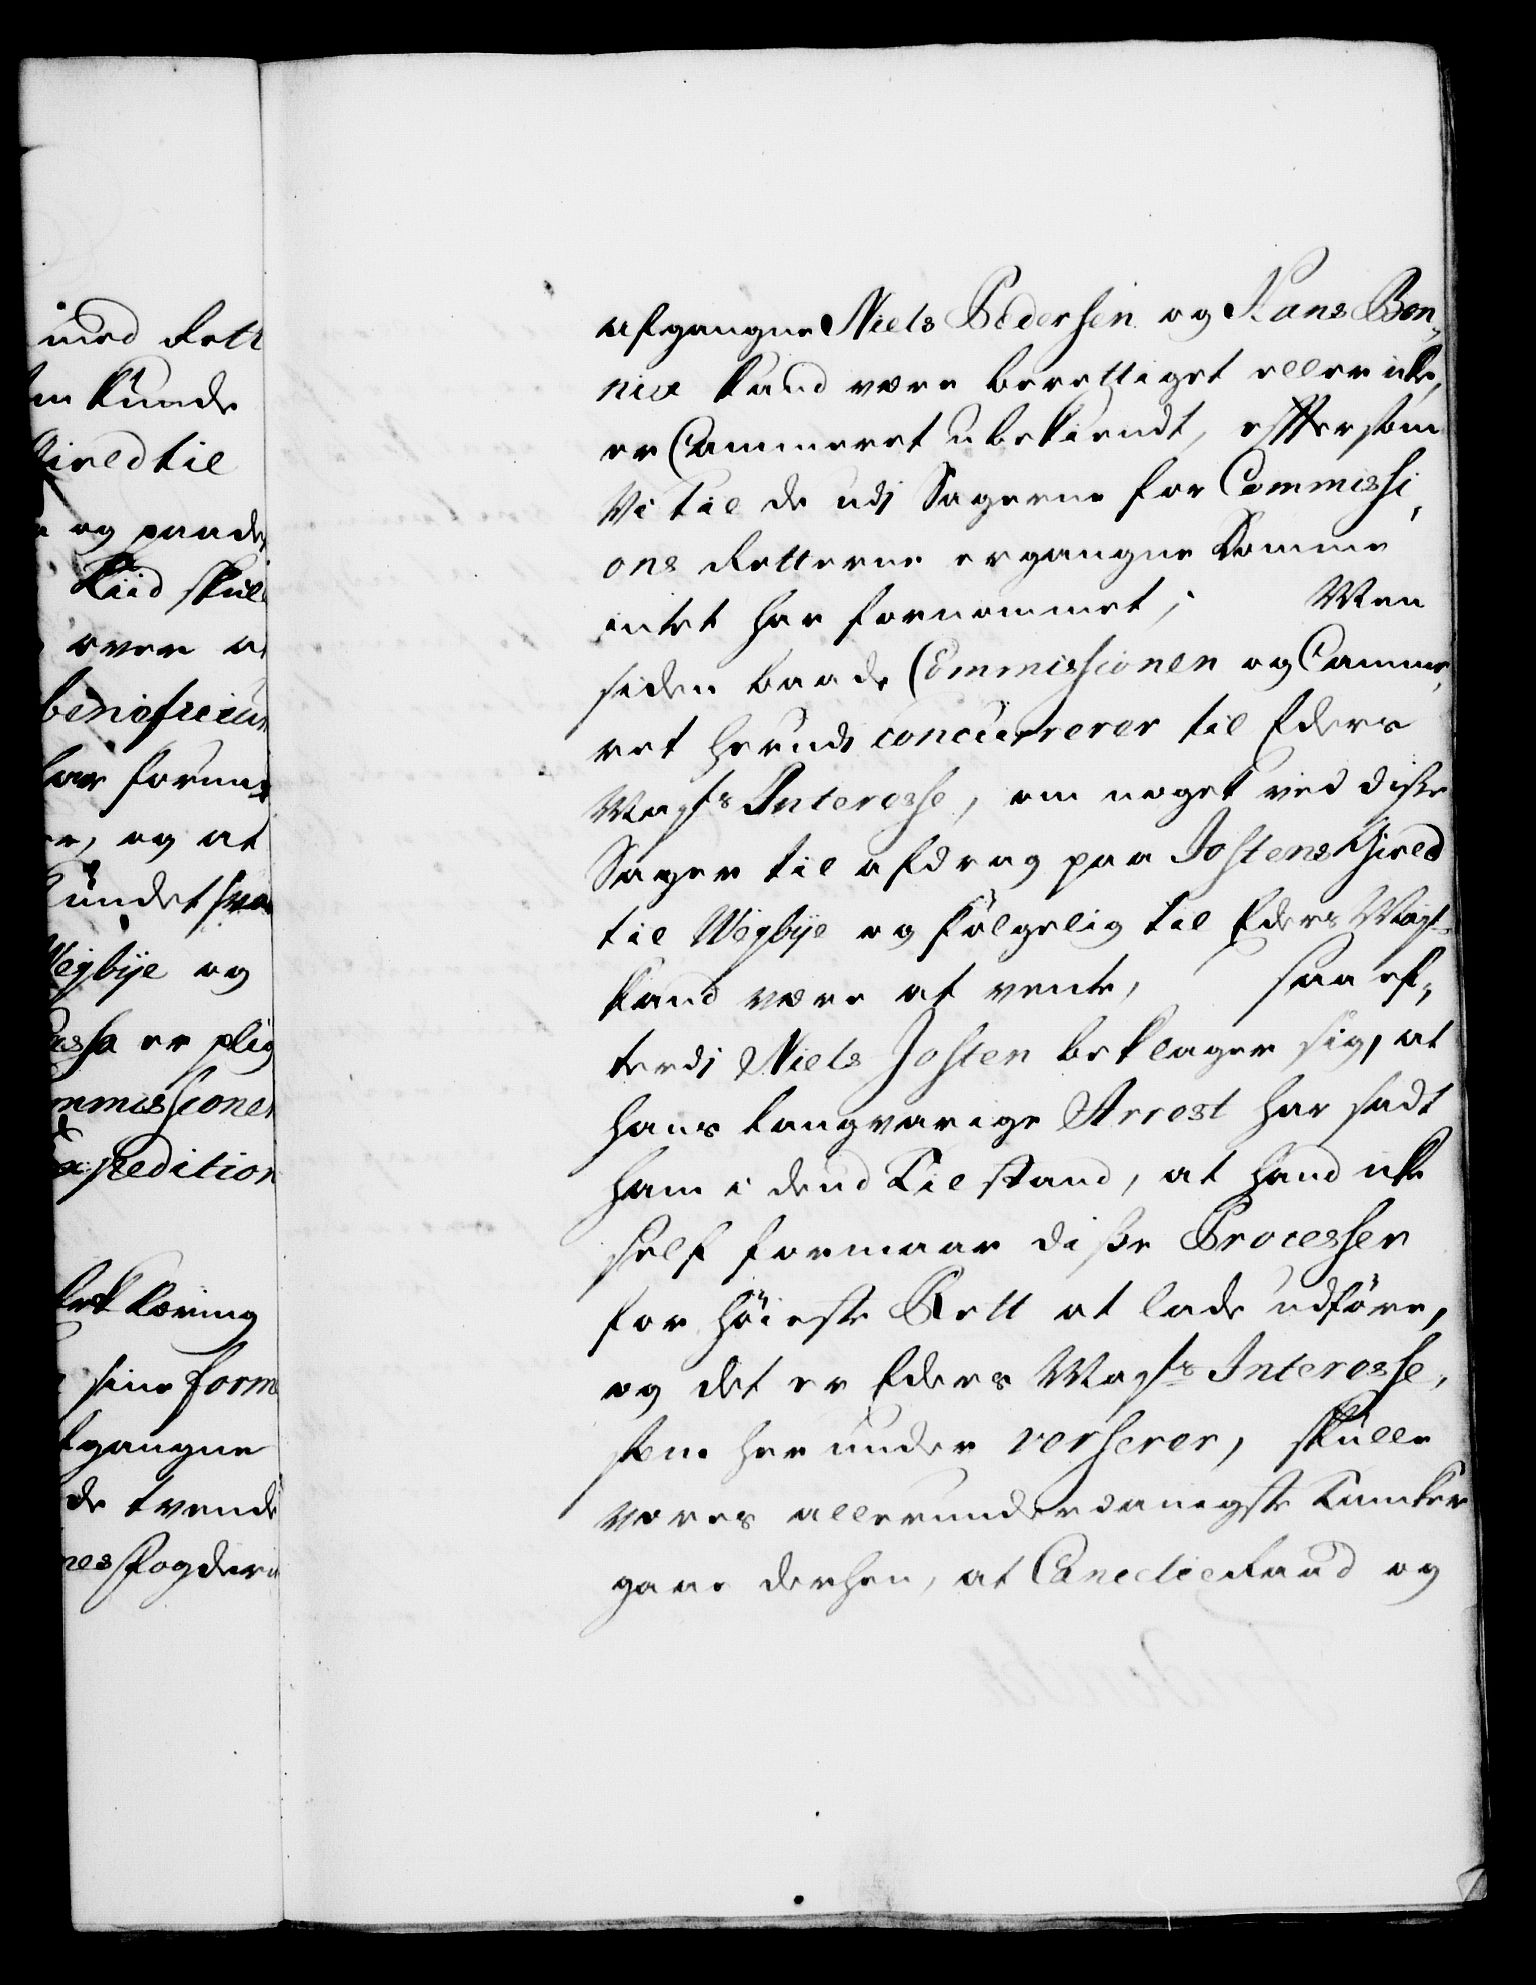 med Rett
kunde
Gield til
og paa de
Tiid skul
over a
beneficium
har fornum
er, og at
kundet sva
Wegbye og
Cassa er plig
ommissionen
Expedition
Erklæring
sine form
fgangne
de tvende
nes Fogderi
afgangne Niels Pedersen og Hans Ben¬
nix kand være berettiget eller icke,
er Cammeret ubekiendt, effterstom
Vi til de udj Sagerne for Commissi¬
ons Retterne ergangne Domme
intet har fornommet; Men
siden baade Commissionen og Camme¬
ret herudj concurrerer til Eders
Mayts Interesse, om noget ved disse
Sager til afdrag paa Jostens Gield
til Wegbye og følgelig til Eders Mayt
kand være at vente, saa ef¬
terdj Niels Josten beklager sig, at
hans langvarige Arrest har sadt
ham i dend Tilstand, at hand icke
self formaar disse Processer
for høieste Rett at lade udføre,
og det er Eders Mayts Interesse,
som her under verserer, skulle
vores allerunderdanigste Tancker
gaae derhen, at Cancelieraad og